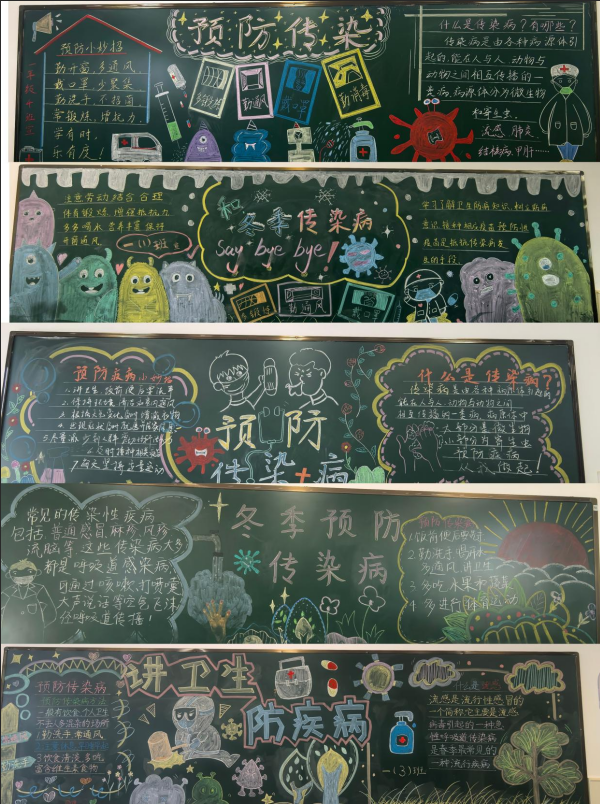 预防传染
预防小妙招
勤开窗,多通风
戴口罩,少聚集
勤洗手,不揉窝
常锻炼,增抵力
常有时,
乐有度!
多锻炼
勤通风
戴口罩
勤消毒
什么是传染病?有哪些?
传染病是由各种病源体引
起的,能在人与人、动物与
动物之间相互传播的一
类病,病源体分为微生物
和寄生虫.
流感 肺炎
结核病、甲肝……
注意劳动结合合理
体育锻炼 增强抵抗力
多多喝水 营养丰富 保持
开窗通风
一(1)班
和
冬季传染病
say bye bye!
多锻炼
勤通风
戴口罩
学习了解卫生防病知识,树立防病
意识,接种相应疫苗预防性
疫苗是抵抗传染病发
生的手段
预防疾病小妙招
1.讲卫生 饭前便后要洗手
7.每天坚持适量运动
预防
传染病
什么是传染病?
传染病是由各种病原体引起的
能在人与人、动物与动物之间
相互传播的一类病,病原体中
大部分是微生物
小部分为寄生虫
预防疾病
从我做起!
常见的传染性疾病
包括普通感冒、麻疹、风疹、
流脑等,这些传染病大多
都是呼吸道感染病,
可通过咳嗽、打喷嚏
大声说话等空气飞沫
经呼吸道传播!
冬季预防
传染病
预防传染病
1.饭前便后要洗手
2.勤洗手
多通风 讲卫生
3.多吃水果和蔬菜
4.多进行体育运动
讲卫生
防疾病
预防传染病
一(3)班
什么是流感
流感是流行性感冒的
一个简称,它主要是流感
病毒引起的一种急
性呼吸道传染病
是春季最常见的
一种流行疾病